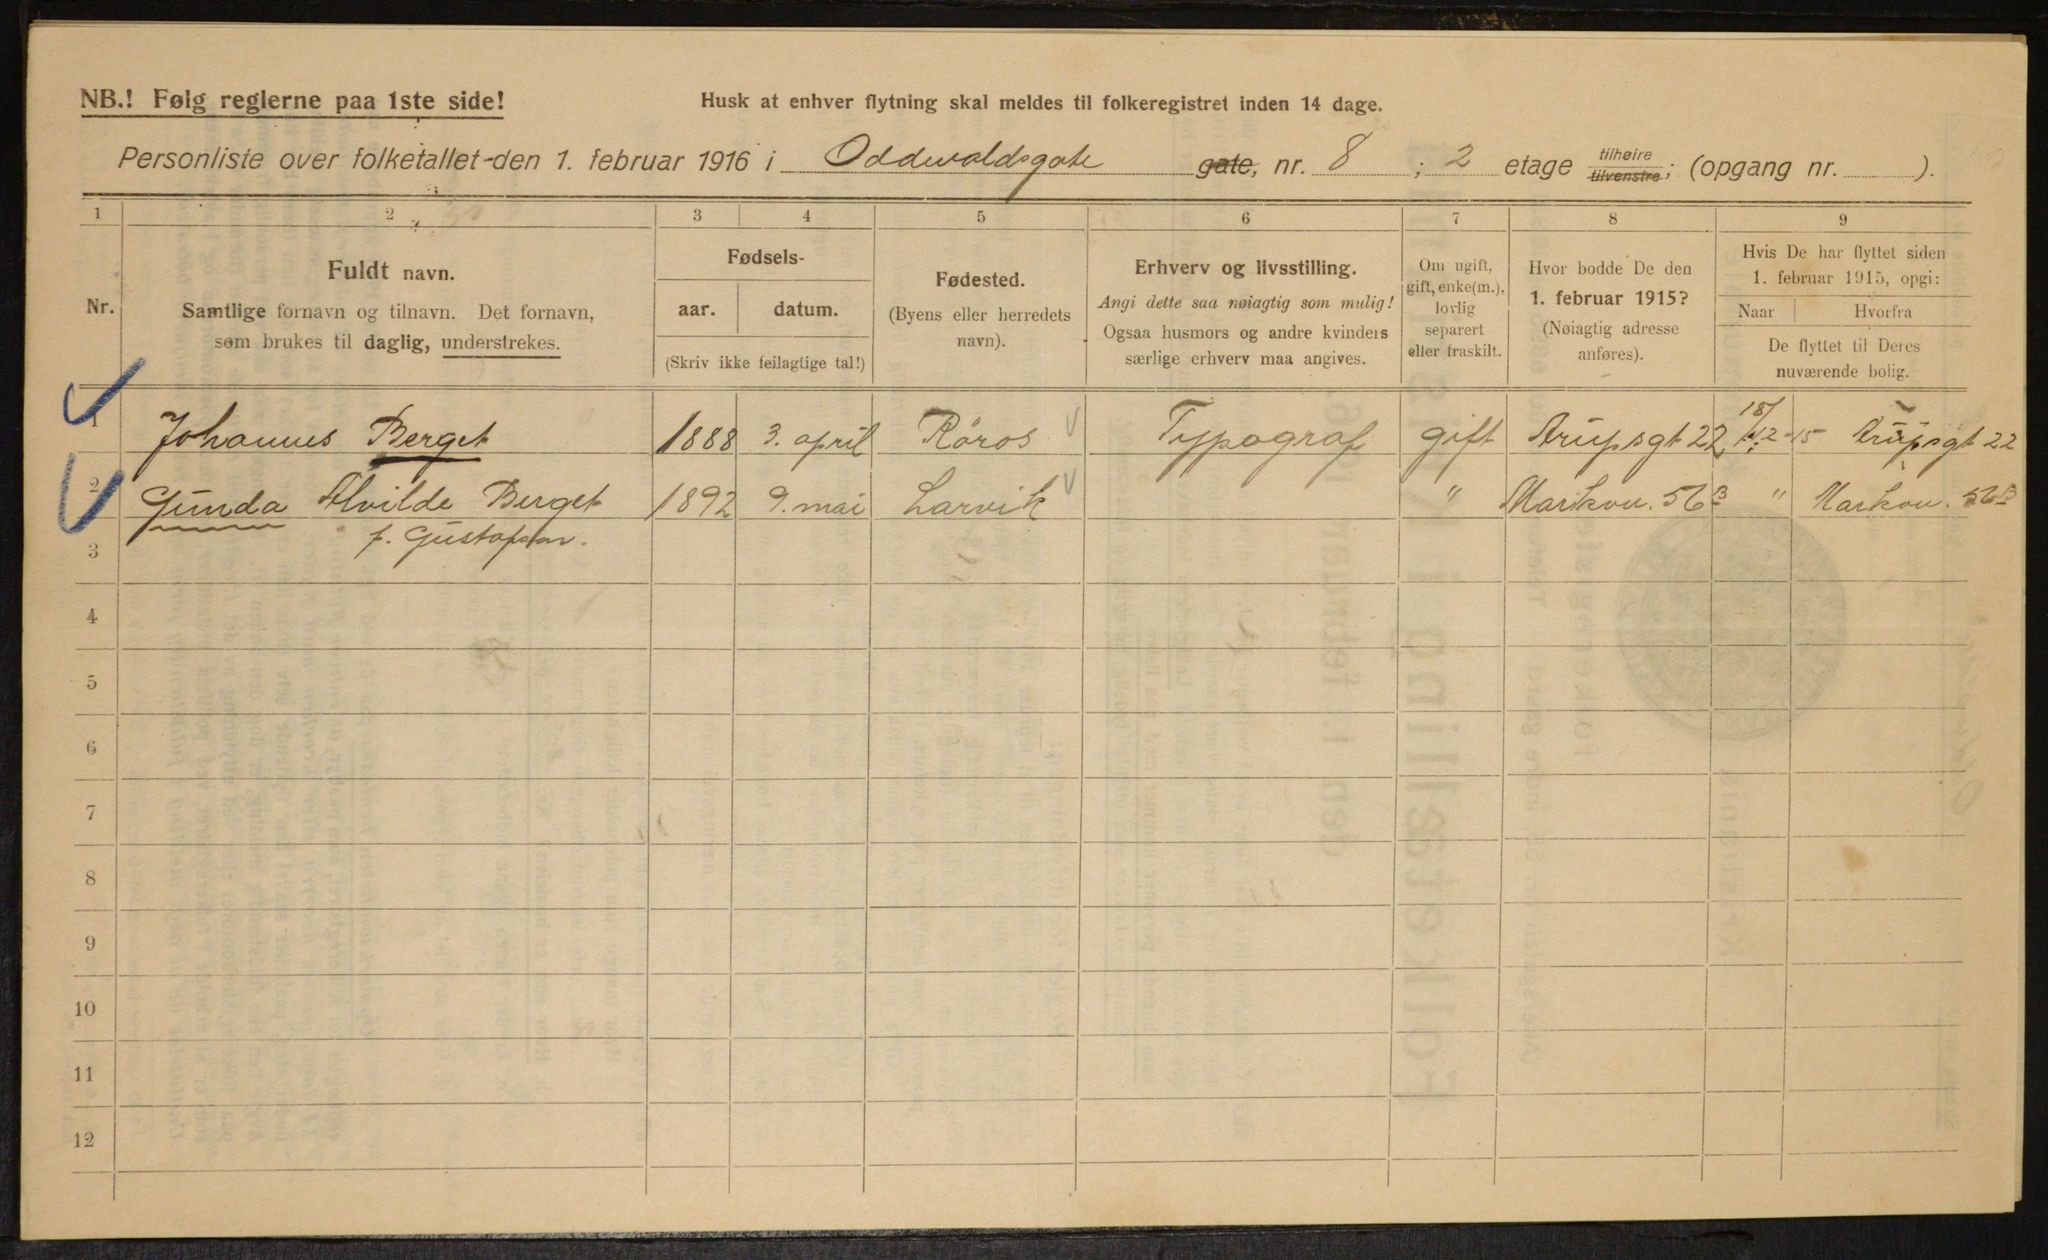 NB.! Følg reglerne paa 1ste side!
Husk at enhver flytning skal meldes til folkeregistret inden 14 dage.
Personliste over folketallet den 1. februar 1916 i Oddvaldsgate gate, nr. 8 ; 2 etage tilhøire tilvenstre; (opgang nr. ).
1 2 3 4 5 6 7 8 9
Nr.
Fuldt navn.
Samtlige fornavn og tilnavn. Det fornavn,
som brukes til daglig, understrekes.
Fødsels-
aar. datum.
(Skriv ikke feilagtige tal!)
Fødested.
(Byens eller herredets
navn).
Erhverv og livsstilling.
Angi dette saa nøiagtig som mulig!
Ogsaa husmors og andre kvinders
særlige erhverv maa angives.
Om ugift,
gift, enke(m.),
lovlig
separert
eller fraskilt.
Hvor bodde De den
1. februar 1915?
(Nøiagtig adresse
anføres).
Hvis De har flyttet siden
1. februar 1915, opgi:
Naar Hvorfra
De flyttet til Deres
nuværende bolig.
1 Johannes Berget 1888 3. april Röros Typograf gift Arupsgt 22 18/12-15 Arupsgt 22
2 Gunda Alvilde Berget 1892 9. mai Larvik " Markov. 56B " Markov. 56B
f. Gustafson.
3
4
5
6
7
8
9
10
11
12